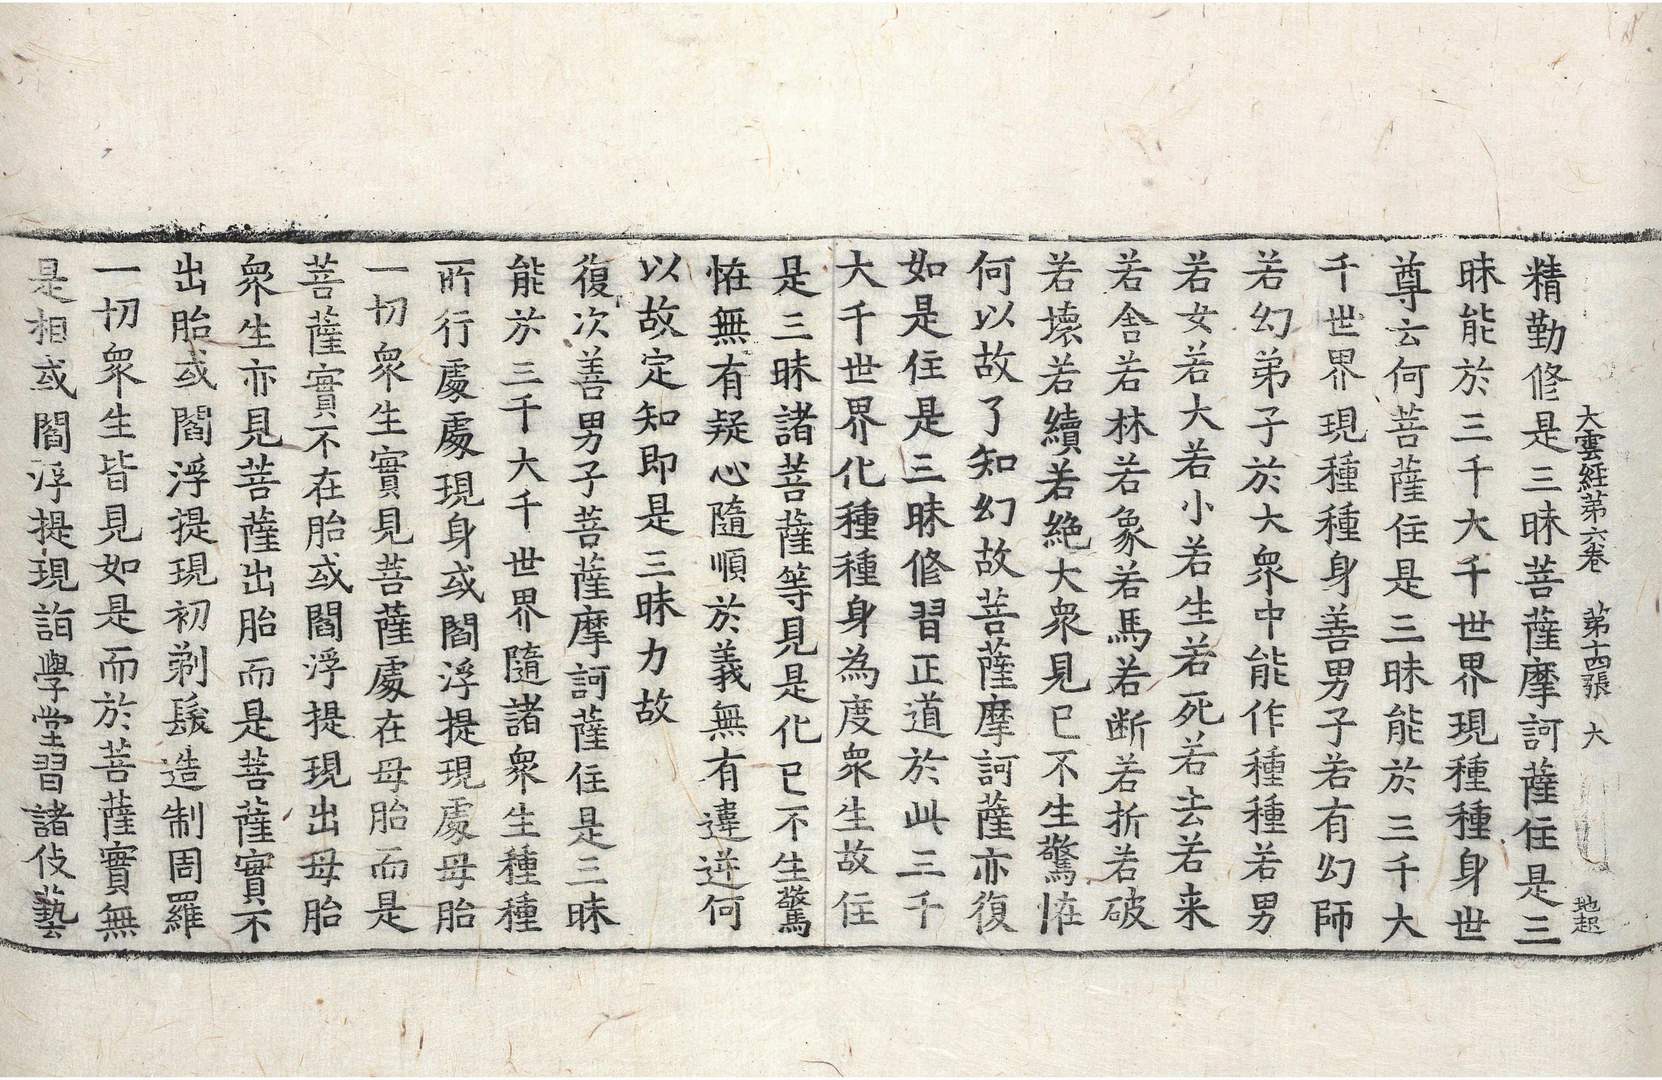 大雲經第六卷　第十四張　大　地起
精勤修是三昧菩薩摩訶薩住是三
昧能於三千大千世界現種種身世
尊云何菩薩住是三昧能於三千大
千世界現種種身善男子若有幻師
若幻弟子於大衆中能作種種若男
若女若大若小若生若死若去若来
若舎若林若象若馬若断若折若破
若壞若續若絶大衆見已不生驚恠
何以故了知幻故菩薩摩訶薩亦復
如是住是三昧修習正道於此三千
大千世界化種種身為度衆生故住
是三昧諸菩薩等見是化已不生驚
恠無有疑心隨順於義無有違逆何
以故定知即是三昧力故
復次善男子菩薩摩訶薩住是三昧
能於三千大千世界隨諸衆生種種
所行處處現身或閻浮提現處母胎
一切衆生實見菩薩處在母胎而是
菩薩實不在胎或閻浮提現出母胎
衆生亦見菩薩出胎而是菩薩實不
出胎或閻浮提現初剃髮造制周羅
一切衆生皆見如是而於菩薩實無
是相或閻浮提現詣學堂習諸伎藝